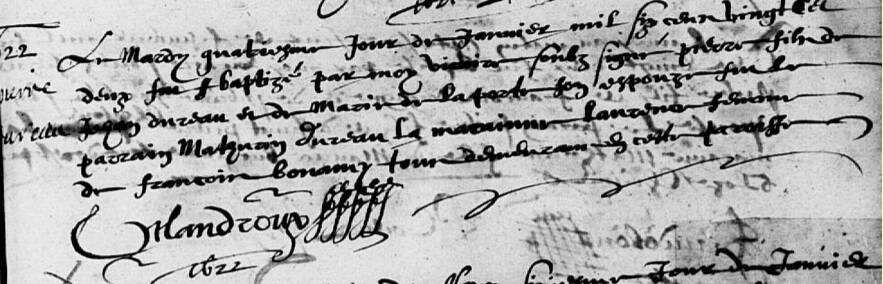 Le Mardy quatriesme Jour de Janvier mil six cens vingt et
deux fut baptizé par moy vicaire soubz signé pierre filz de
Jaques dureau et de Marie de laporte son espouze fut le
parrain Mathurin dureau la marainne laurence femme
de francois bonamy tous demeurans en ceste paroisse
1622
Jour de Janvier